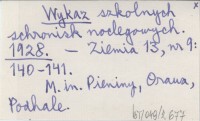 Wykaz szkolnych
schronisk noclegowych.
1928. — Ziemia 13, nr 9:
140-141.
M. in. Pieniny, Orawa,
Podhale.